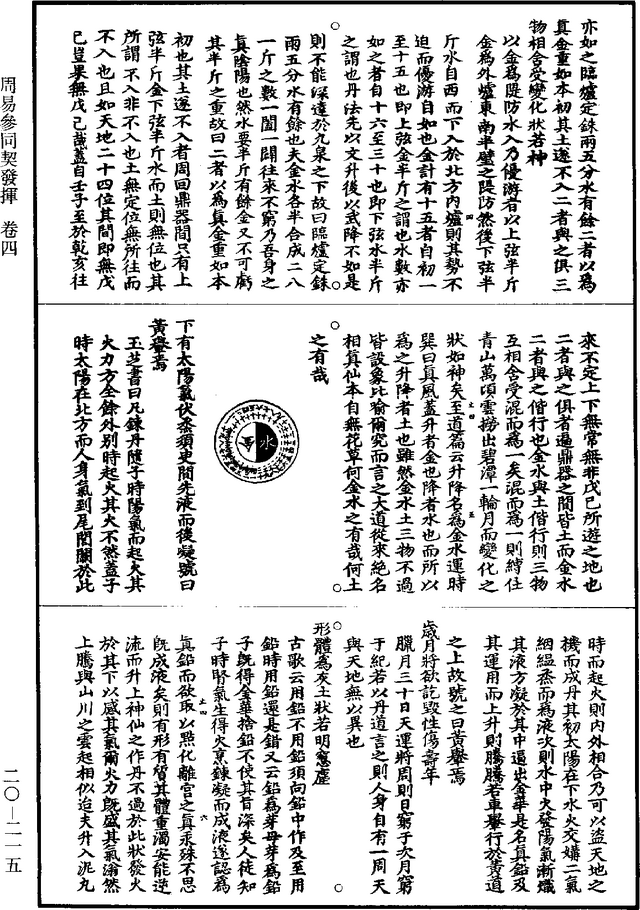 亦如之臨爐定銖兩五分水有餘二者以為
真金重如本初其土遂不入二者與之俱三
物相含受變化狀若神
以金為隄防水入乃優游者以上弦半斤
金為外爐東南半壁之隄防然後下弦半
斤水自西而下入於北方內爐則其勢不
迫而優游自如也金計有十五者自初一
至十五也即上弦金半斤之謂也水數亦
如之者自十六至三十也即下弦水半斤
之謂也丹法先以文升後以武降不如是
則不能深達於九泉之下故曰臨爐定銖
兩五分水有餘也夫金水各半合成二八
一斤之數一闔一闢往來不窮乃吾身之
真陰陽也然水要半斤有餘金又不可虧
其半斤之重故曰二者以為真金重如本
初也其土遂不入者周回鼎器間只有上
弦半斤金下弦半斤水而土則無位也其
所謂不入非不入也土無定位無所往而
不入也且如天地二十四位其間即無戊
己豈果無戊己哉蓋自壬子至於乾亥往
來不定上下無常無非戊己所遊之地也
二者與之俱者遍鼎器之間皆土而金水
二者與之偕行也金水與土偕行則三物
互相含受混而為一矣混而為一則縛住
青山萬頃雲撈出碧潭一輪月而變化之
狀如神矣至道篇云升降名為金水運時
巽曰真風蓋升者金也降者水也而所以
為之升降者土也雖然金水土三物不過
皆設象比喻爾究而言之大道從來絕名
相真仙本自無花草何金水之有哉何土
之有哉
水
下有太陽氣伏蒸須臾間先液而後凝號曰
黃轝焉
玉芝書曰凡鍊丹隨子時陽氣而起火其
火力方全餘外別時起火其火不然蓋子
時太陽在北方而人身氣到尾閭關於此
時而起火則內外相合乃可以盜天地之
機而成丹其初太陽在下水火交媾二氣
絪縕蒸而為液次則水中火發陽氣漸熾
其液方凝於其中逼出金華是名真鉛及
其運用而上升則騰騰若車轝行於黃道
之上故號之曰黃轝焉
歲月將欲訖毀性傷壽年
臘月三十日天運將周則日窮于次月窮
于紀若以丹道言之則人身自有一周天
與天地無以異也
形體為灰土狀若明窻塵
古歌云用鉛不用鉛須向鉛中作及至用
鉛時用鉛還是錯又云鉛為芽母芽為鉛
子旣得金華捨鉛不使其旨深矣人徒知
子時腎氣生得火烹鍊凝而成液遂認為
真鉛而欲取以點化離宮之真汞殊不思
旣成液矣則有形有質其體重濁安能逆
流而升上神仙之作丹不過於此狀發火
於其下以感其氣爾火力旣盛其氣滃然
上騰與山川之雲起相似迨夫升入泥丸
周易參同契發揮 卷四
二〇—二一五